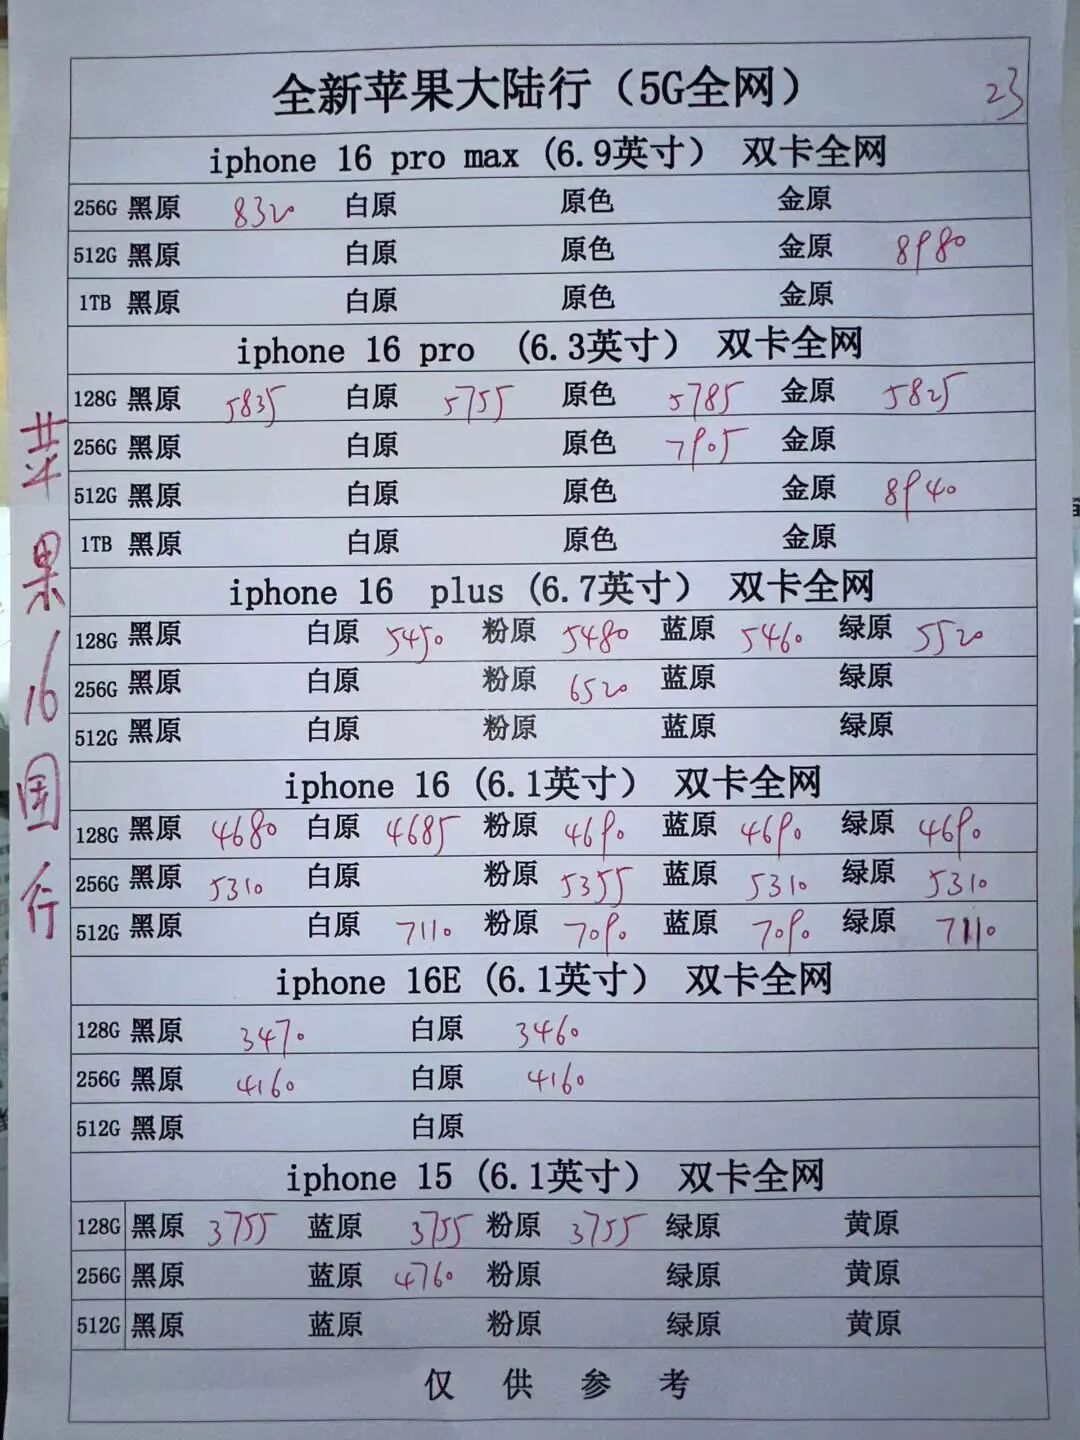 全新苹果大陆行（5G全网）
23
iphone 16 pro max (6.9英寸） 双卡全网
256G 黑原 8320 白原 原色 金原
512G 黑原 白原 原色 金原 8980
1TB 黑原 白原 原色 金原
iphone 16 pro (6.3英寸） 双卡全网
128G 黑原 5835 白原 5755 原色 5785 金原 5825
256G 黑原 白原 原色 7905 金原
512G 黑原 白原 原色 金原 8940
1TB 黑原 白原 原色 金原
iphone 16 plus (6.7英寸） 双卡全网
128G 黑原 白原 5450 粉原 5480 蓝原 5460 绿原 5520
256G 黑原 白原 粉原 6520 蓝原 绿原
512G 黑原 白原 粉原 蓝原 绿原
iphone 16 (6.1英寸） 双卡全网
128G 黑原 4680 白原 4685 粉原 4690 蓝原 4690 绿原 4690
256G 黑原 5310 白原 粉原 5355 蓝原 5310 绿原 5310
512G 黑原 白原 7110 粉原 7090 蓝原 7090 绿原 7110
iphone 16E (6.1英寸） 双卡全网
128G 黑原 3470 白原 3460
256G 黑原 4160 白原 4160
512G 黑原 白原
iphone 15 (6.1英寸） 双卡全网
128G 黑原 3755 蓝原 3755 粉原 3755 绿原 黄原
256G 黑原 蓝原 4760 粉原 绿原 黄原
512G 黑原 蓝原 粉原 绿原 黄原
仅供参考
苹果16国行